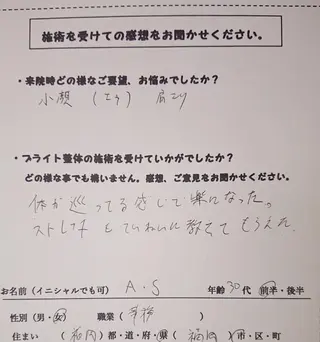 施術を受けての感想をお聞かせください。
・来院時どの様なご要望、お悩みでしたか？
小顔 (エラ) 肩こり
・ブライト整体の施術を受けていかがでしたか？
どの様な事でも構いません。感想、ご意見をお聞かせください。
体が巡ってる感じで楽になった。
ストレッチもていねいに教えてもらえた。
お名前（イニシャルでも可） A・S 年齢 30代 前半・後半
性別（男・女） 職業（事務）
住まい（福岡）都・道・府・県（福岡）市・区・町